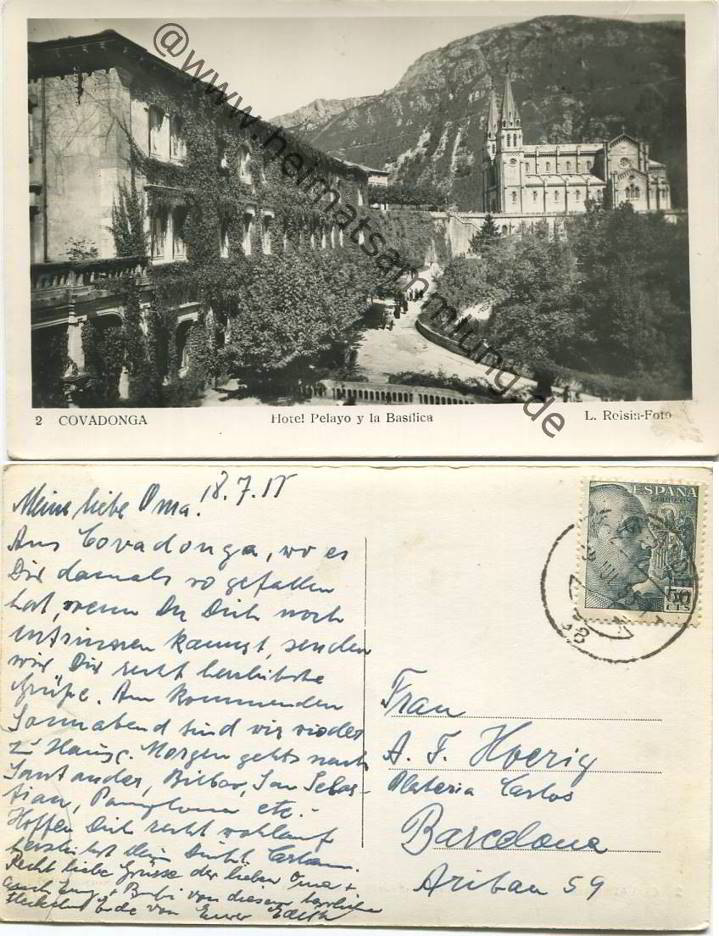 @www.heimatsammlung.de
2 COVADONGA Hotel Pelayo y la Basílica L. Roisin-Foto
18.7.
Meine liebe Oma.
Aus Covadonga, wo es
Dir damals so gefallen
hat, wenn Du Dich noch
entsinnen kannst, senden
wir Dir recht herzlichste
Grüße. Am kommenden
Sonnabend sind wir wieder
zu Hause. Morgen gehts nach
Santander, Bilbao, San Sebas-
tian, Pamplona etc.
Hoffen Dich recht wohlauf
herzlichst Dein
Recht liebe Grüsse der lieben Oma +
Bubi von dieser herrlichen
von Eurer Edith
ESPAÑA
CORREOS
50
CTS
Frau
A. F. Hoerig
Plateria Carlos
Barcelona
Aribau 59